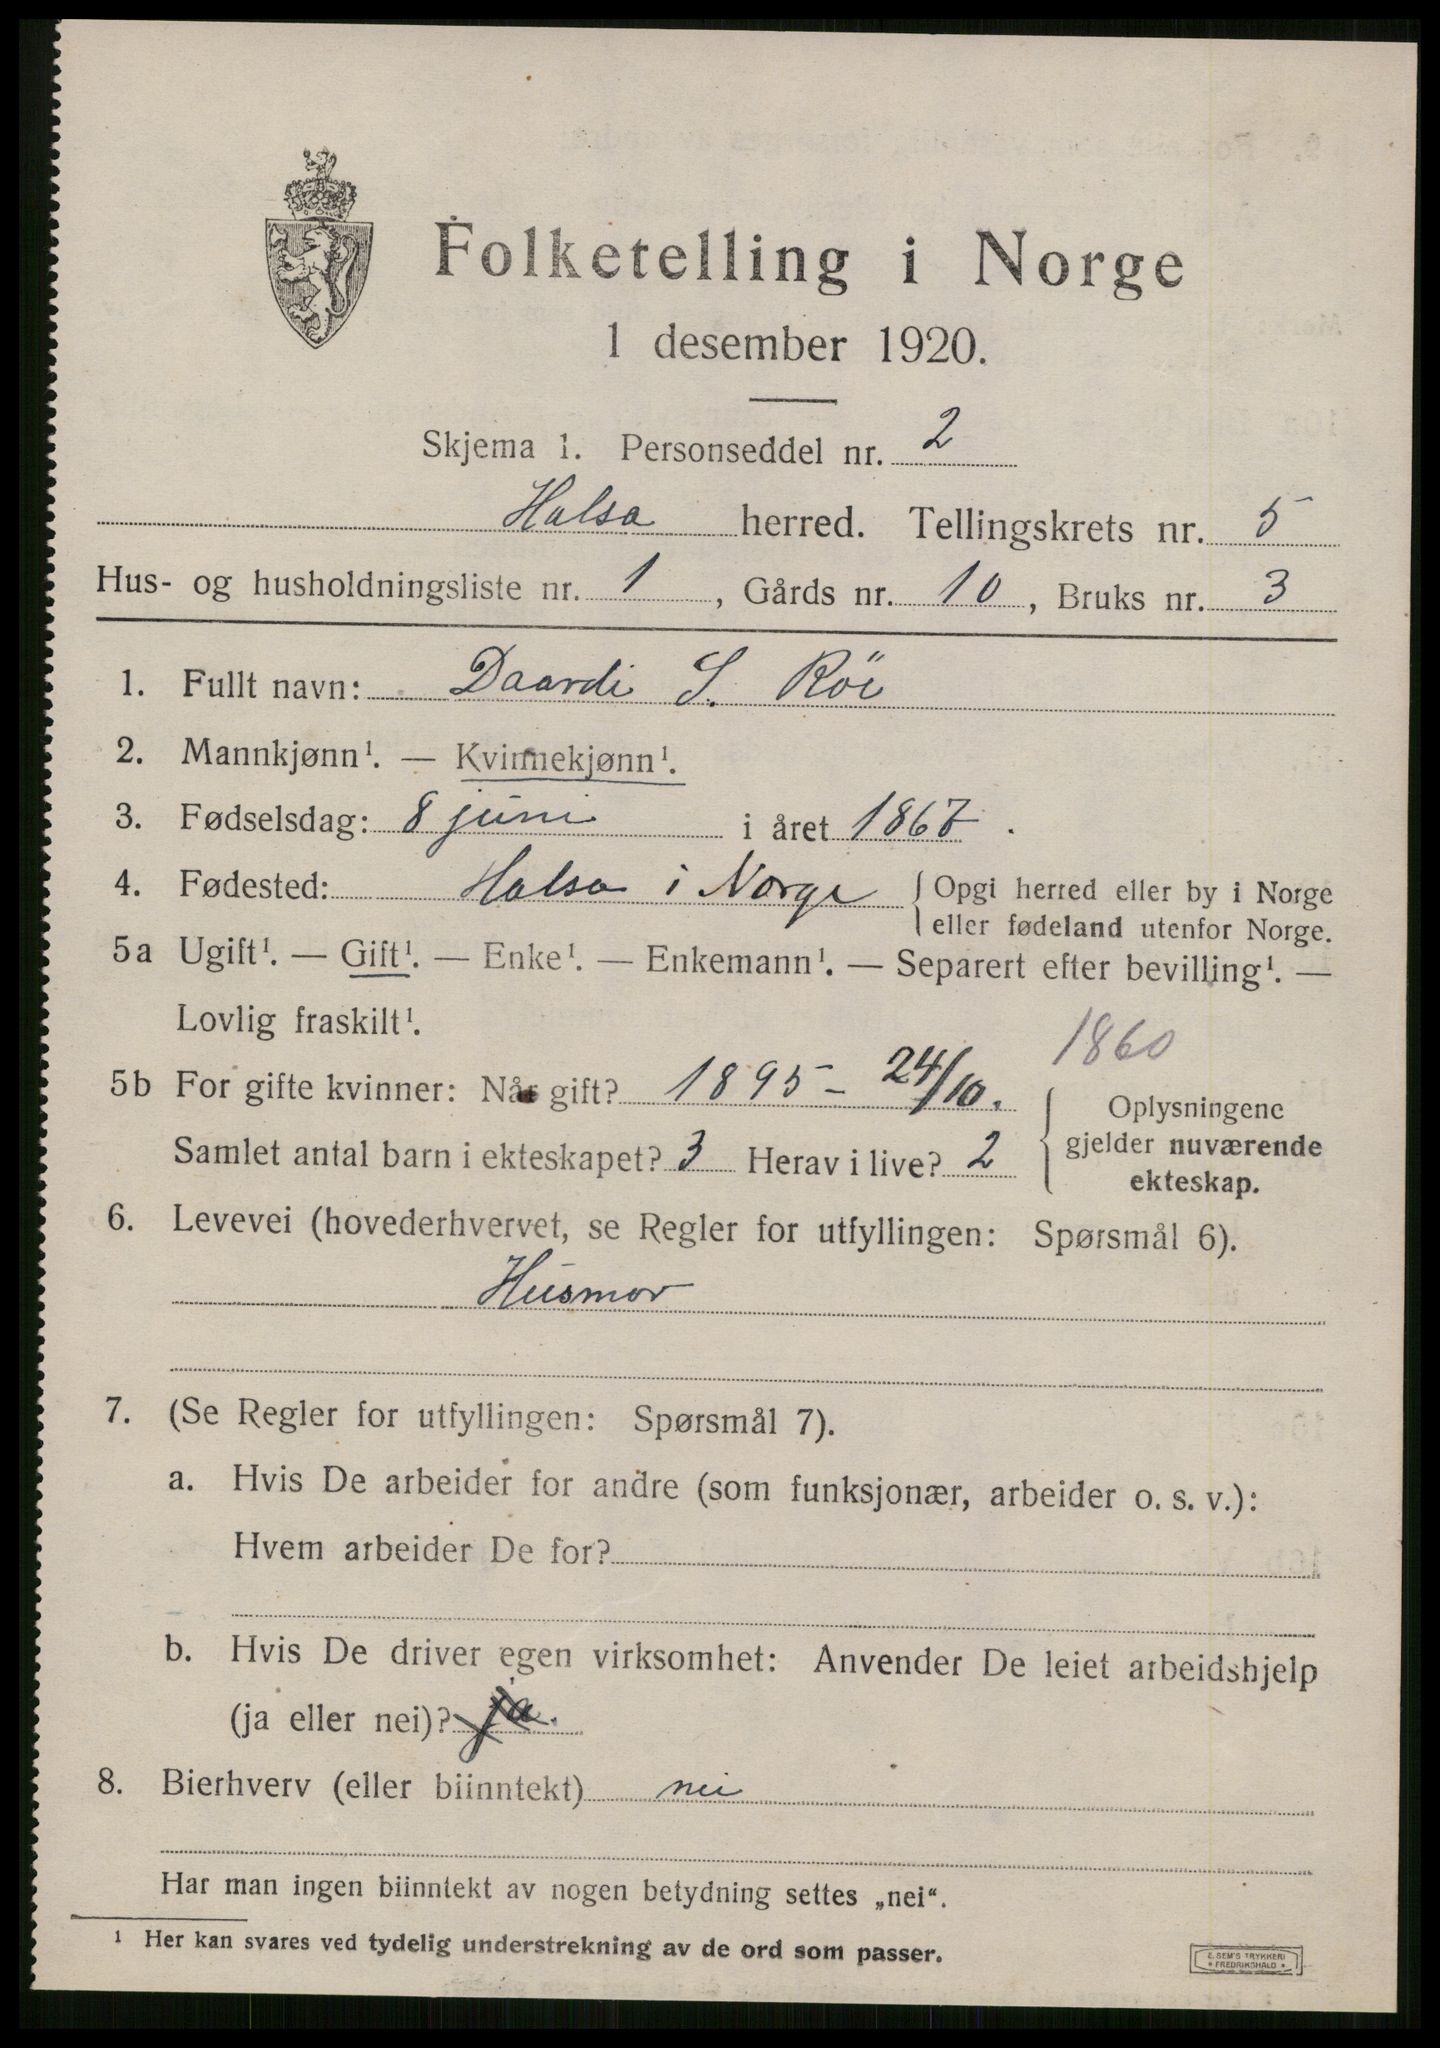 Folketelling i Norge
1 desember 1920.
Skjema 1. Personseddel nr. 2
Halsa herred. Tellingskrets nr. 5
Hus- og husholdningsliste nr. 1, Gårds nr. 10, Bruks nr. 3
1. Fullt navn: Daardi S. Röe
2. Mannkjønn¹. — Kvinnekjønn¹.
3. Fødselsdag: 8 juni i året 1867.
4. Fødested: Halsa i Norge { Opgi herred eller by i Norge
eller fødeland utenfor Norge.
5a Ugift¹. — Gift¹. — Enke¹. — Enkemann¹. — Separert efter bevilling¹. —
Lovlig fraskilt¹.
1860
5b For gifte kvinner: Når gift? 1895 - 24/10.
Samlet antal barn i ekteskapet? 3 Herav i live? 2
{ Oplysningene
gjelder nuværende
ekteskap.
6. Levevei (hovederhvervet, se Regler for utfyllingen: Spørsmål 6).
Husmor
7. (Se Regler for utfyllingen: Spørsmål 7).
a. Hvis De arbeider for andre (som funksjonær, arbeider o. s. v.):
Hvem arbeider De for?
b. Hvis De driver egen virksomhet: Anvender De leiet arbeidshjelp
(ja eller nei)? ja.
8. Bierhverv (eller biinntekt) nei
Har man ingen biinntekt av nogen betydning settes „nei“.
¹ Her kan svares ved tydelig understrekning av de ord som passer.
E. SEM'S TRYKKERI
* FREDRIKSHALD *